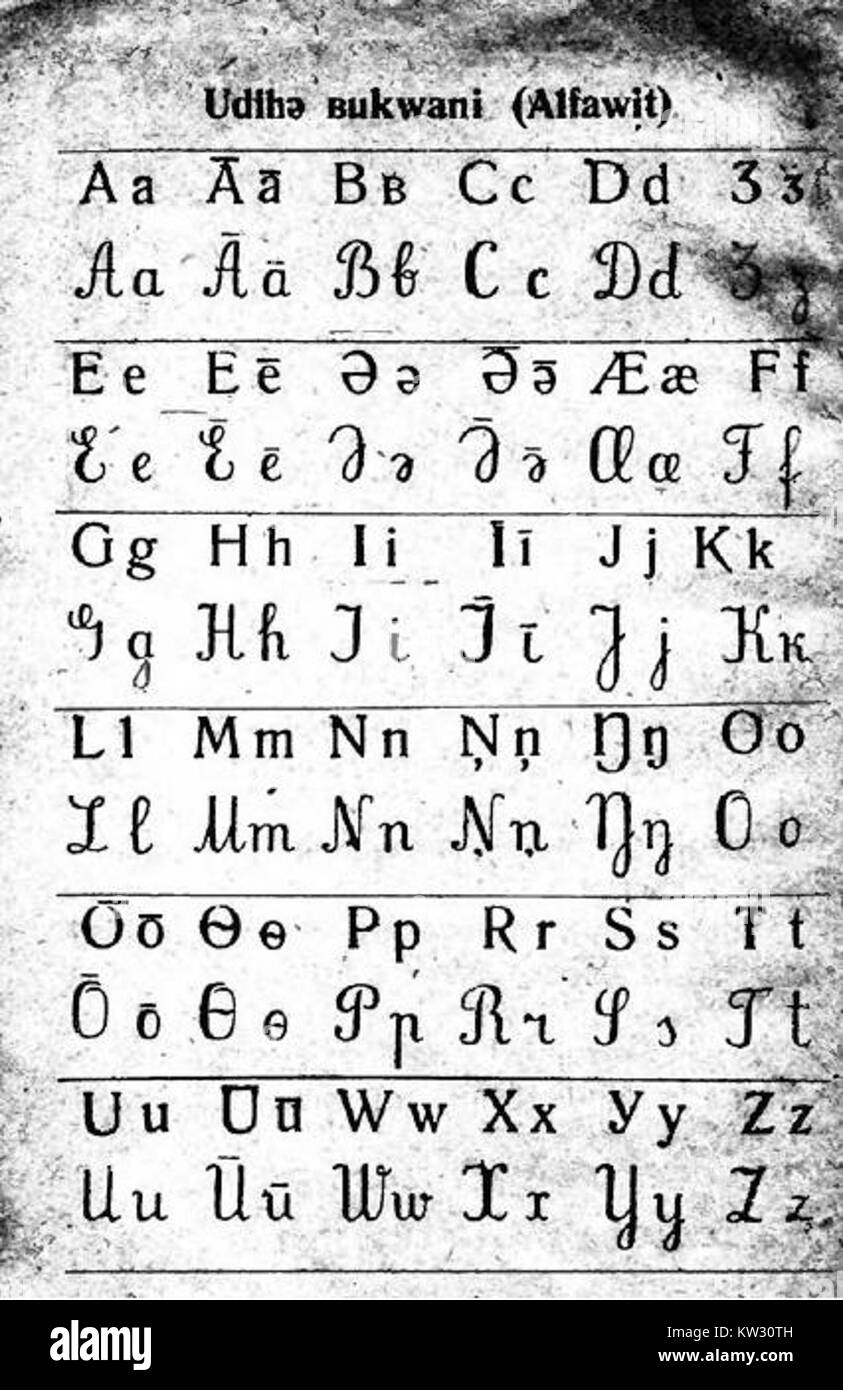 Udihə ʙukwani (Alfawi̩t)
A a Ā ā B ʙ C c D d Ʒ ʒ
A a Ā ā B b C c D d Ʒ ʒ
E e E ē Ə ə Ə̄ ə̄ Æ æ F f
E e Ē ē Ə ə Ə̄ ə̄ Æ æ F f
G g H h I i Ī ī J j K k
G g H h I i Ī ī J j K k
L l M m N n Ņ ņ Ŋ ŋ O o
L l M m N n Ņ ņ Ŋ ŋ O o
Ō ō Ɵ ɵ P p R r S s T t
Ō ō Ɵ ɵ P p R r S s T t
U u Ū ū W w X x Y y Z z
U u Ū ū W w X x Y y Z z
alamy
Image ID: KW30TH
www.alamy.com